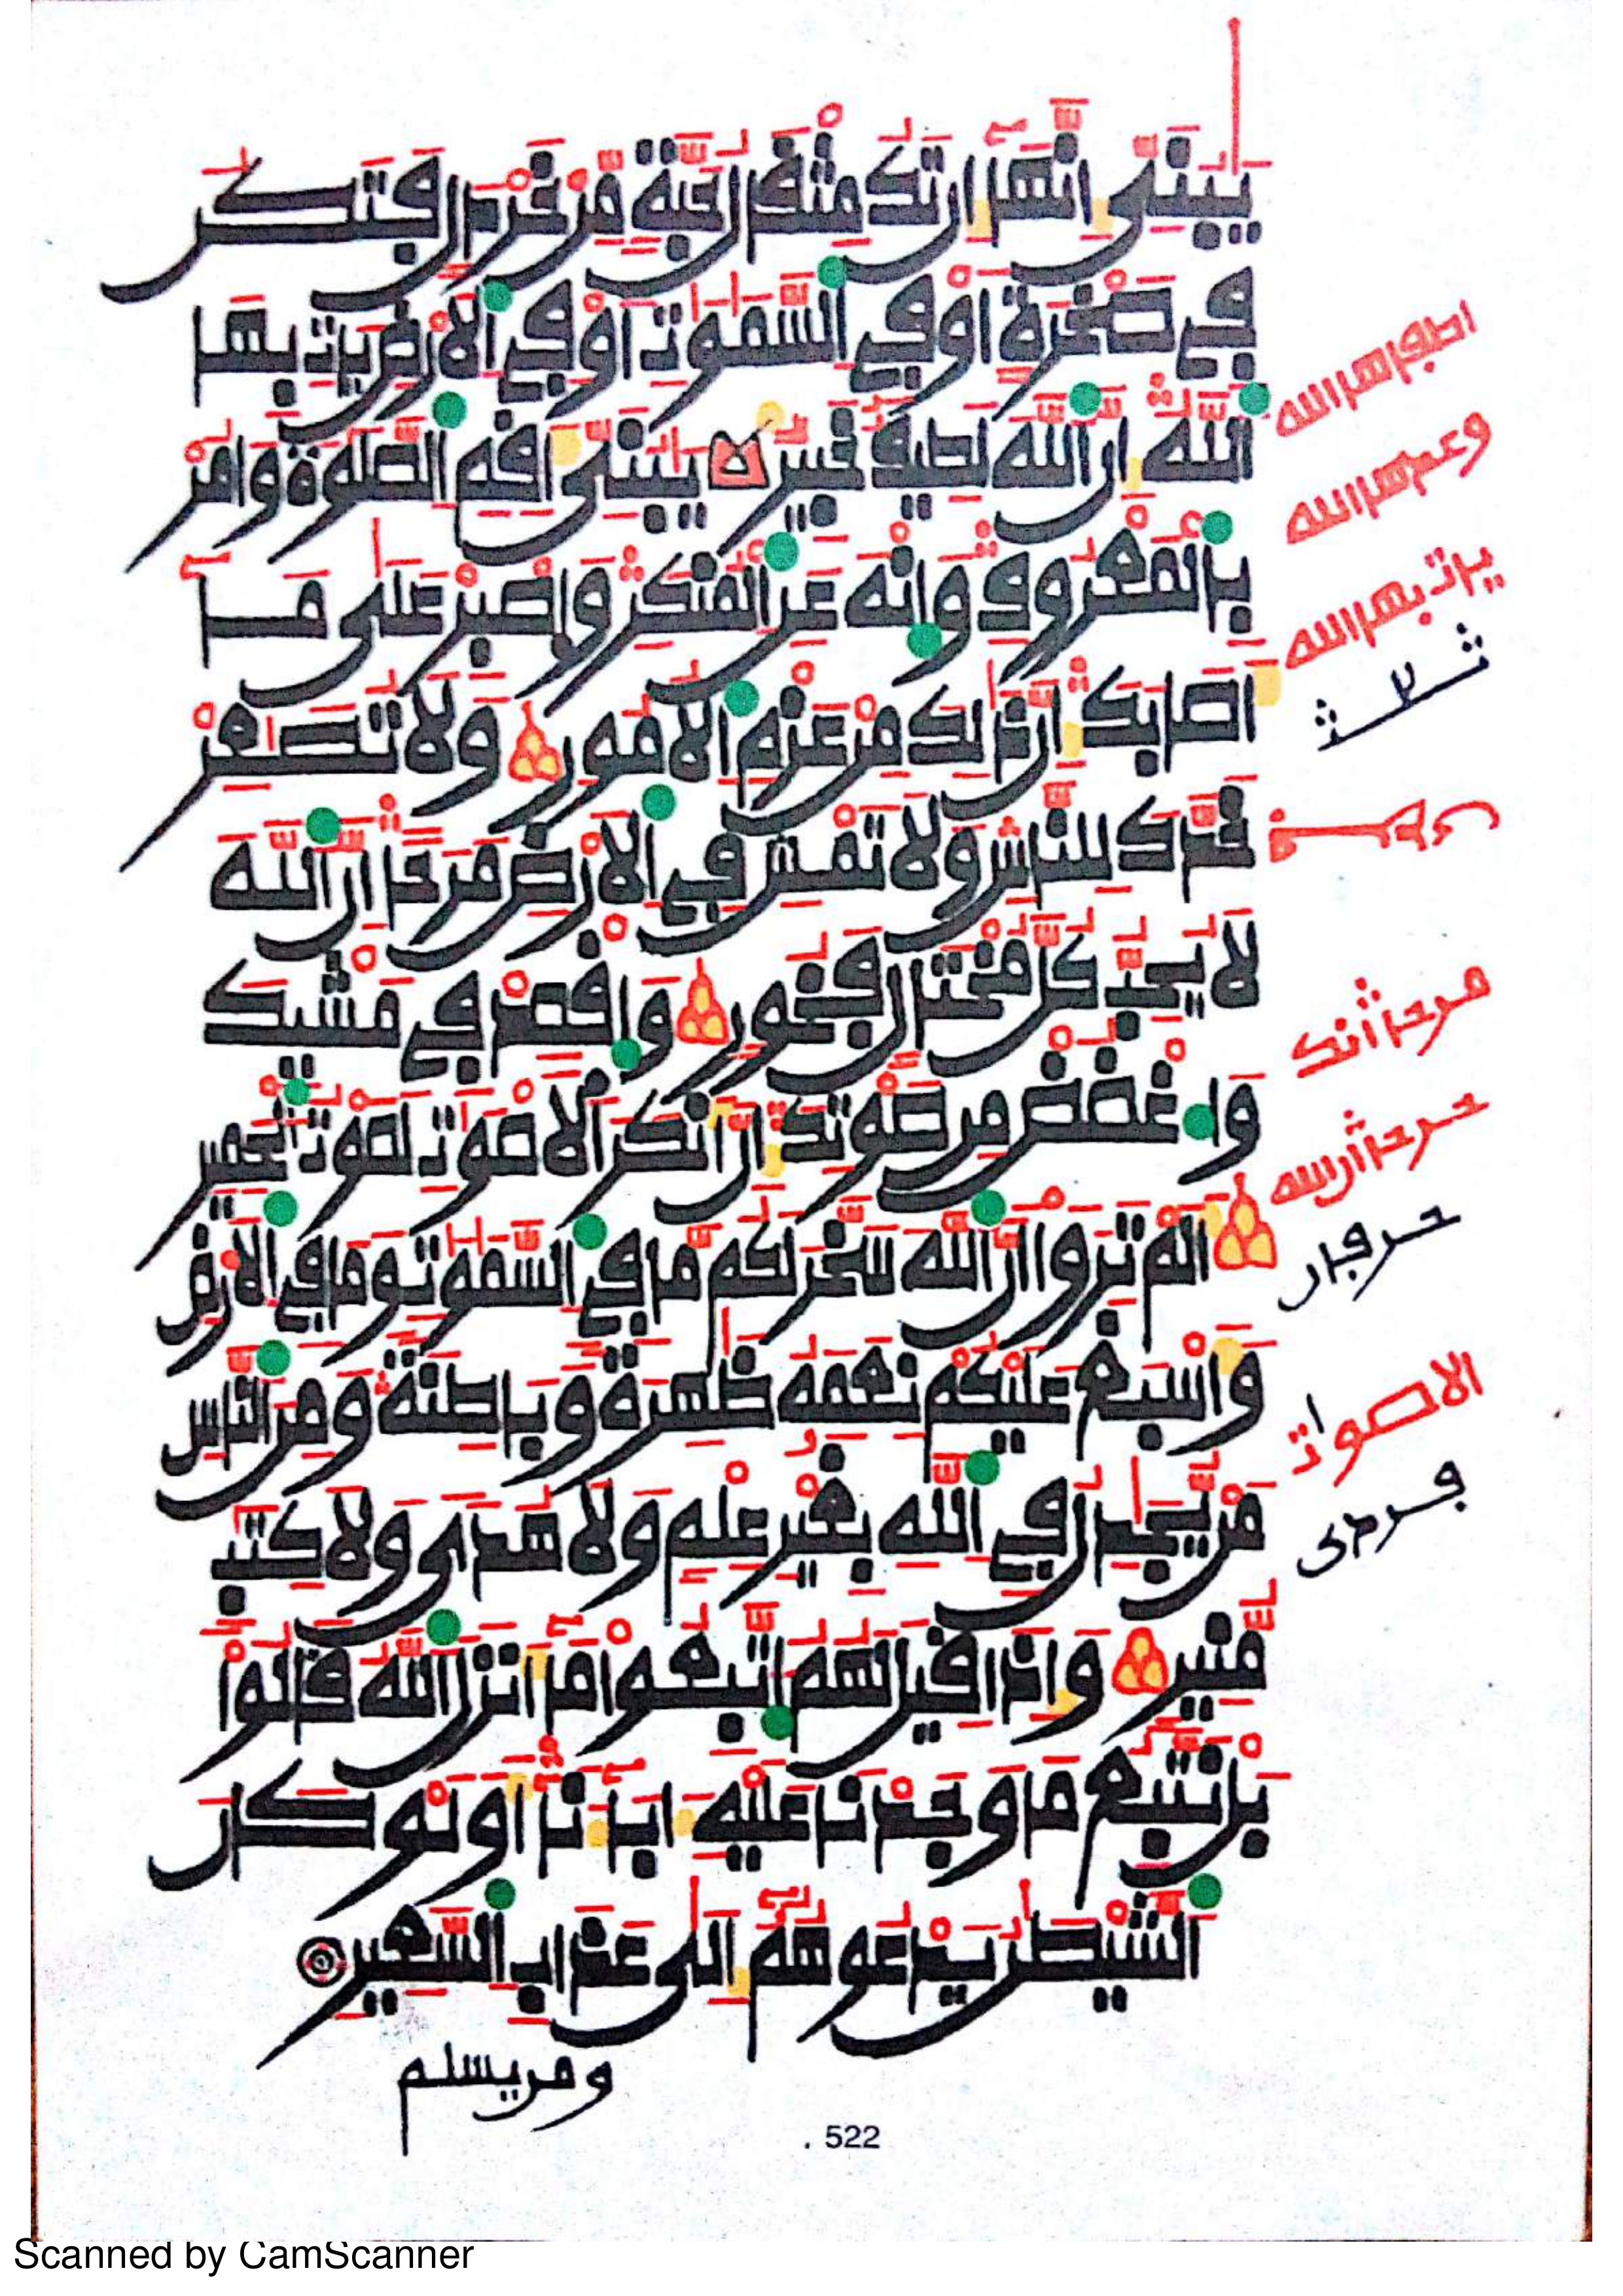 يَٰبُنَىِّ إِنَّهَآ إِن تَكُ مِثْقَالُ حَبَّةٍ مِّنْ خَرْدَلٍ فَتَكُن
فِى صَخْرَةٍ أَوْ فِى اَ۬لسَّمَٰوَٰتِ أَوْ فِى اِ۬لَارْضِ يَاتِ بِهَا
اَ۬للَّهُ إِنَّ اَ۬للَّهَ لَطِيفٌ خَبِيرٌ يَٰبُنَىِّ أَقِمِ اِ۬لصَّلَوٰةَ وَامُرْ
بِالْمَعْرُوفِ وَانْهَ عَنِ اِ۬لْمُنكَرِ وَاصْبِرْ عَلَىٰ مَآ
أَصَابَكَ إِنَّ ذَٰلِكَ مِنْ عَزْمِ اِ۬لُامُورِ وَلَا تُصَٰعِرْ
خَدَّكَ لِلنَّاسِ وَلَا تَمْشِ فِى اِ۬لَارْضِ مَرَحاً إِنَّ اَ۬للَّهَ
لَا يُحِبُّ كُلَّ مُخْتَالٍ فَخُورٍ وَاقْصِدْ فِى مَشْيِكَ
وَاغْضُضْ مِن صَوْتِكَ إِنَّ أَنكَرَ اَ۬لَاصْوَٰتِ لَصَوْتُ اُ۬لْحَمِيرِ
أَلَمْ تَرَوْا اَنَّ اَ۬للَّهَ سَخَّرَ لَكُم مَّا فِى اِ۬لسَّمَٰوَٰتِ وَمَا فِى اِ۬لَارْضِ
وَأَسْبَغَ عَلَيْكُمْ نِعَمَهُۥ ظَٰهِرَةً وَبَاطِنَةً وَمِنَ اَ۬لنَّاسِ
مَنْ يُّجَٰدِلُ فِى اِ۬للَّهِ بِغَيْرِ عِلْمٍ وَلَا هُدىً وَلَا كِتَٰبٍ
مُّنِيرٍ وَإِذَا قِيلَ لَهُمُ اُ۪تَّبِعُوا مَآ أَنزَلَ اَ۬للَّهُ قَالُوا
بَلْ نَتَّبِعُ مَا وَجَدْنَا عَلَيْهِ ءَابَآءَنَآ أَوَلَوْ كَانَ
اَ۬لشَّيْطَٰنُ يَدْعُوهُمُۥٓ إِلَىٰ عَذَابِ اِ۬لسَّعِيرِ
ومن يسلم
الاصوات
522
Scanned by CamScanner